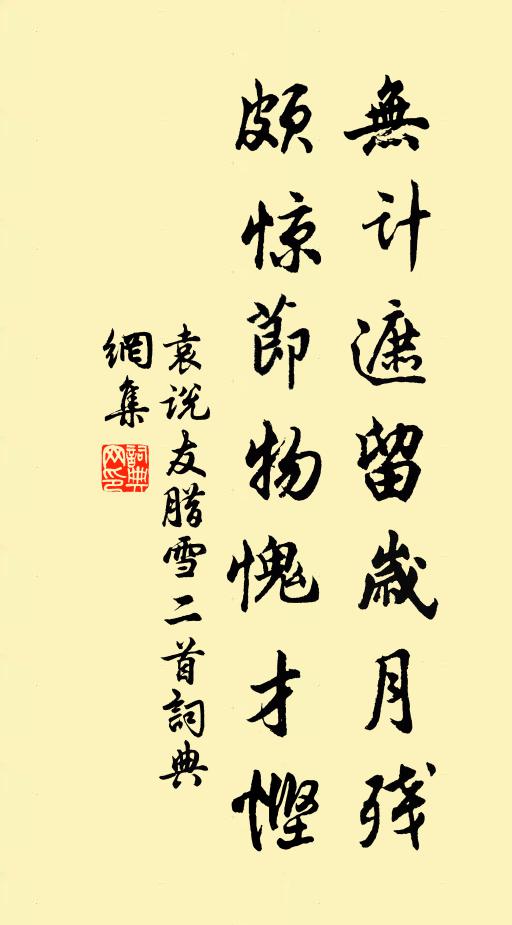 無计遮留歳月残
頗惊節物愧才慳
袁说友腊雪二首詞典
網集
詞典
网印